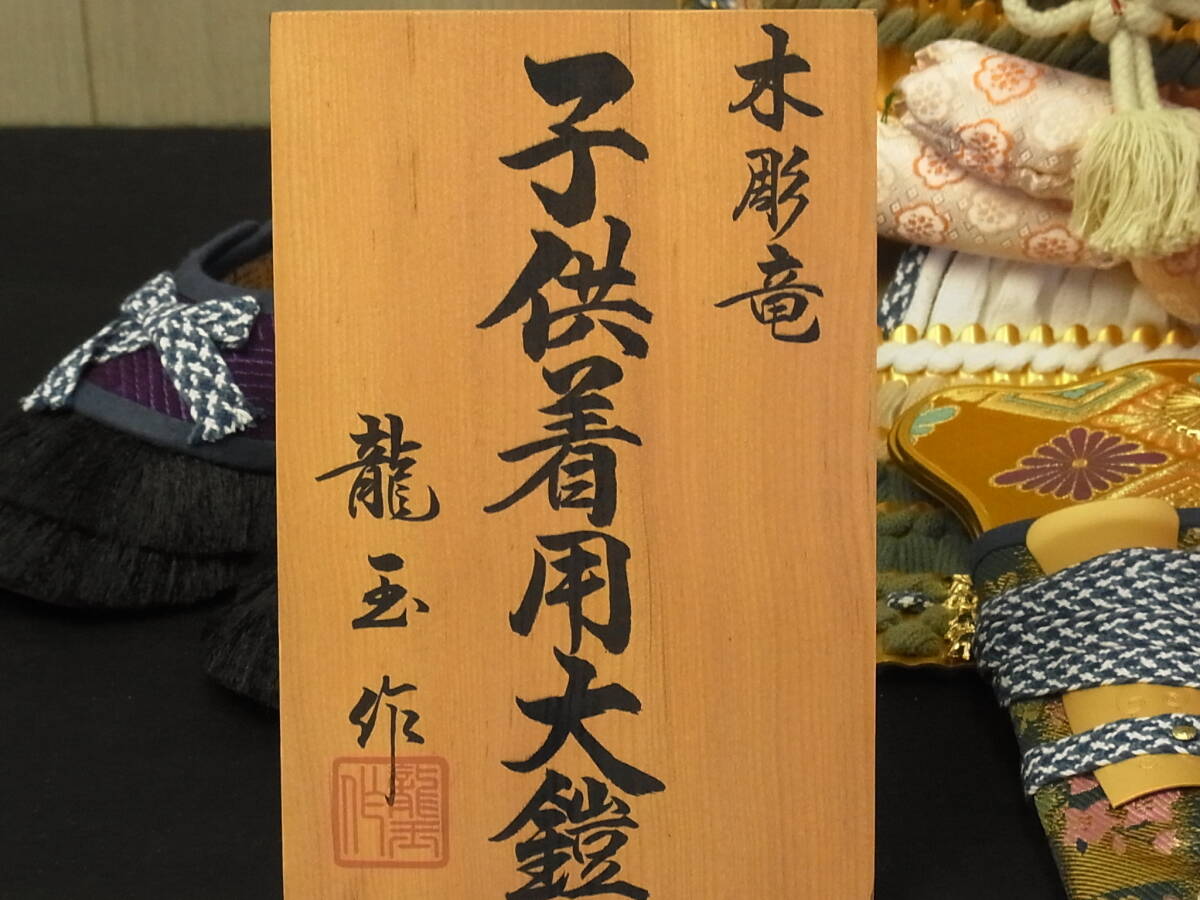 木彫竜
子供着用大鎧
龍玉作
龍玉作